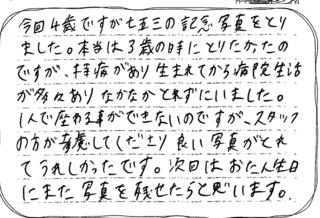 今回4歳ですが七五三の記念写真をとり
ました。本当は3歳の時にとりたかったの
ですが、持病があり生まれてから病院生活
が多々ありなかなかとれずにいました。
1人で座る事ができないのですが、スタッフ
の方が考慮してくださり良い写真がとれ
てうれしかったです。次回はおたん生日
にまた写真を残せたらと思います。